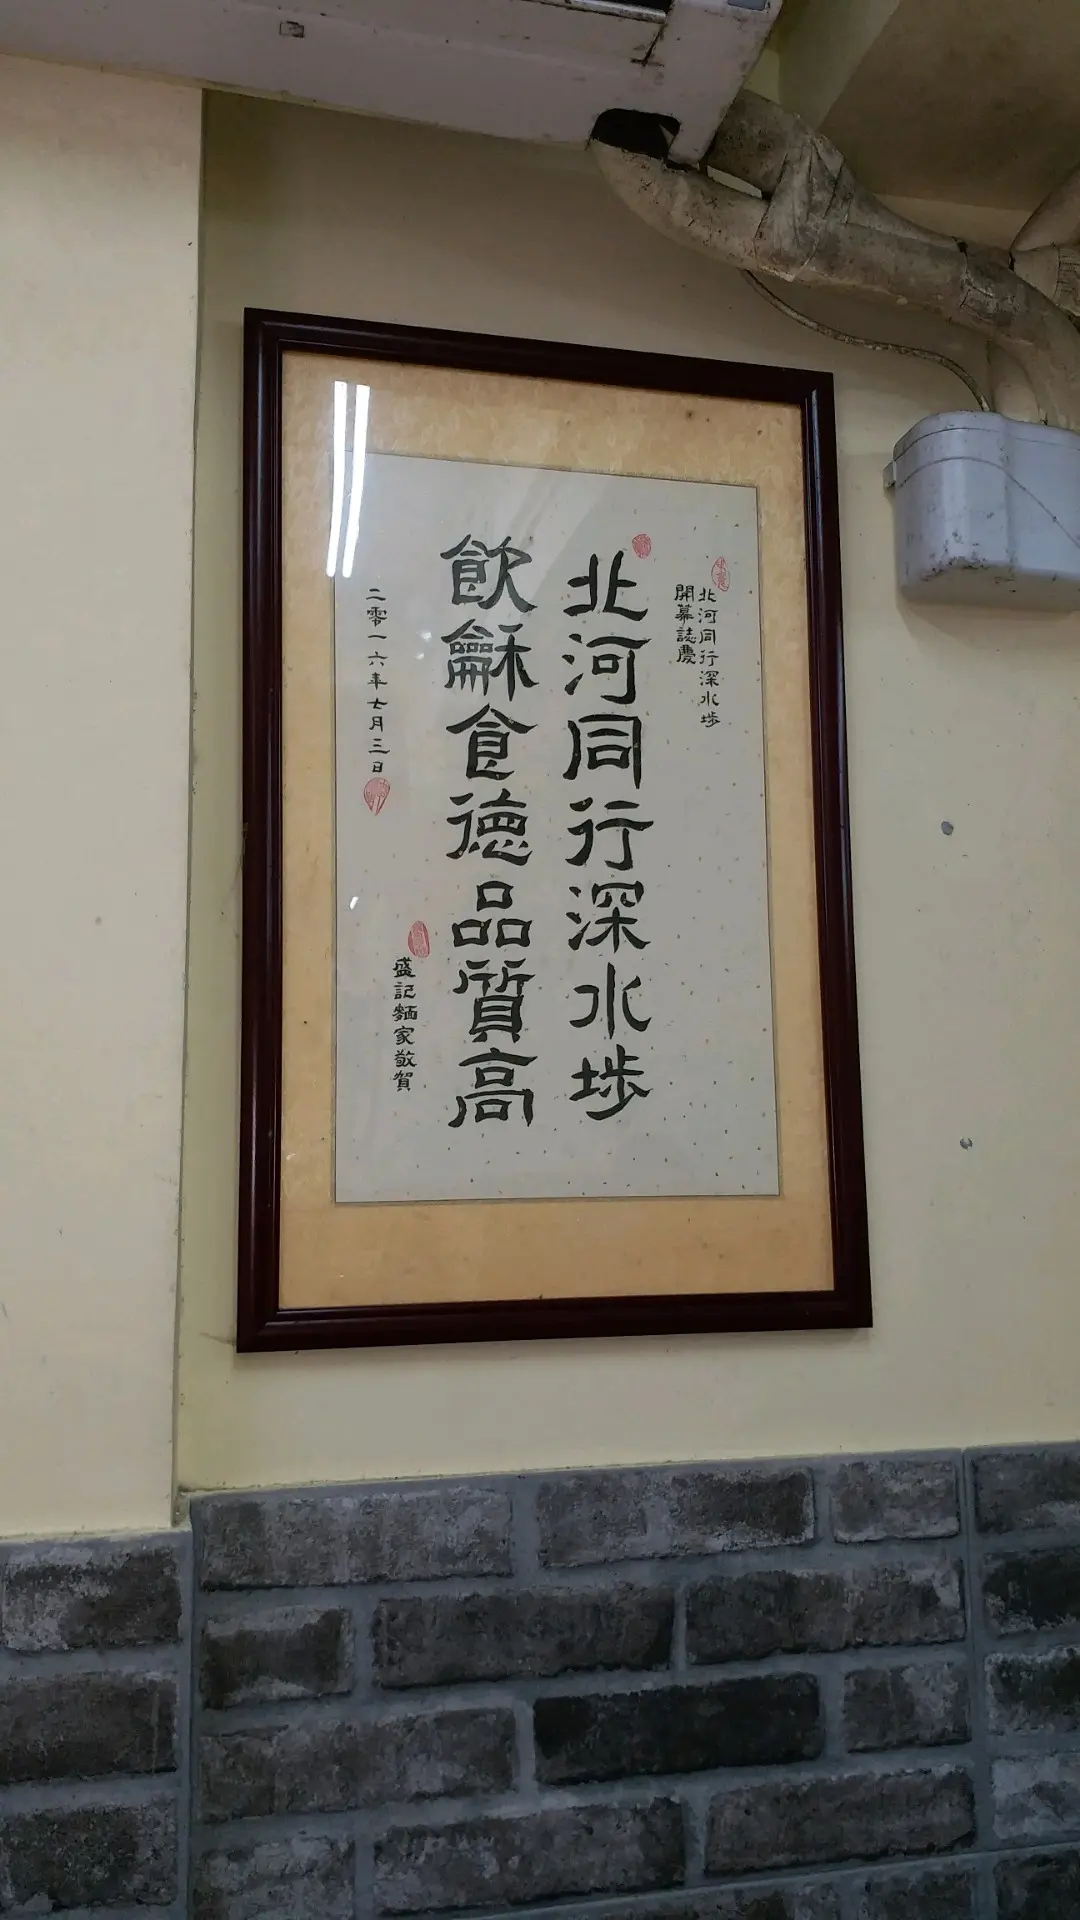 北河同行深水埗
開幕誌慶
北河同行深水埗
飲龢食德品質高
二零一六年七月三日
盛記麵家敬賀